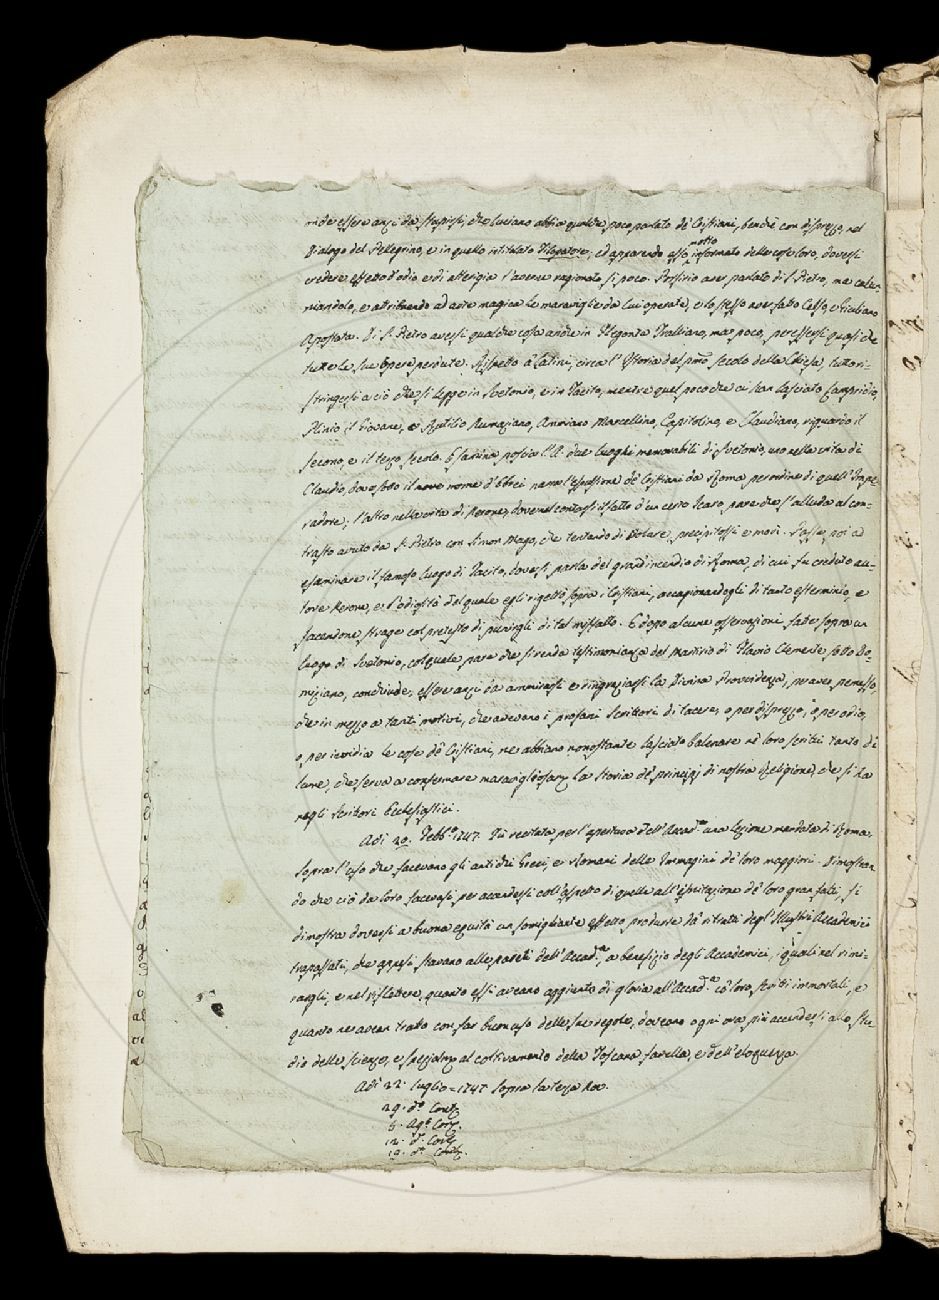 mide essere anzi da stupirsi, che Luciano abbia qualche poco parlato de' Cristiani, benchè con disprezzo, nel
Dialogo del Pellegrino, e in quello intitolato Filopatore; ed apparendo esso molto informato delle cose loro, doversi
credere effetto d'odio e di alterigia l'averne ragionato sì poco. Porfirio aver parlato di S. Pietro, ma calun-
niandolo, e attribuendo ad arte magica le maraviglie da lui operate, e lo stesso aver fatto Celso, e Giuliano
Apostata. Di S. Pietro aversi qualche cosa anche in Flegonte Tralliano, ma poco, per essersi quasi che
tutte le sue Opere perdute. Rispetto a' Latini, circa l'Istoria del pmo secolo della Chiesa, tutto ri-
stringersi a ciò che si legge in Svetonio, e in Tacito, mentre quel poco che ci han lasciato Lampridio,
Plinio il Giovane, e Rutilio Numaziano, Ammiano Marcellino, Capitolino, e Claudiano, riguarda il
secondo, e il terzo secolo. Esamina poscia l'A. due luoghi memorabili di Svetonio, uno nella vita di
Claudio, dove sotto il nome d'Ebrei narra l'espulsione de' Cristiani da Roma per ordine di quell'Impe-
radore; l'altro nella vita di Nerone, dove nel contarsi il fatto d'un certo Icaro, pare che s'alluda al con-
trasto avuto da S. Pietro con Simon Mago, che tentando di volare, precipitossi e morì. Passa poi a
esaminare il famoso luogo di Tacito, dove si parla del grand'incendio di Roma, di cui fu creduto au-
tore Nerone, e l'odiosità del quale egli rigettò sopra i Cristiani, accagionandogli di tanto esterminio, e
facendone strage col pretesto di punirgli di tal misfatto. E dopo alcune osservazioni fatte sopra un
luogo di Svetonio, col quale pare che si renda testimonianza del martirio di Flavio Clemente sotto Do-
miziano, conchiude, essere anzi da ammirarsi e ringraziarsi la Divina Provvidenza, per aver permesso,
che in mezzo a tanti motivi, che avevano i profani Scrittori di tacere, o per disprezzo, o per odio,
o per invidia le cose de' Cristiani, ne abbiano nonostante lasciato balenare ne' loro scritti tanto di
lume, che serva a confermare maravigliosamte la Storia de' principj di nostra Religione, che si ha
negli Scrittori Ecclesiastici.
Adì 20. Febb.o 1747. Fù recitata per l'apertura dell'Accad.a una lezione mandata di Roma,
sopra l'uso che facevano gli antichi Greci, e Romani delle Immagini de' loro maggiori. Dimostran-
do che ciò da loro facevasi per accendersi coll'aspetto di quelle all'imitazione de' loro gran fatti, si
dimostra doversi a buona equità un somigliante effetto produrre da' ritratti degl'Illustri Accademici
trapassati, che appesi stavano alle pareti dell'Accad.a, a benefizio degli Accademici, i quali nel rimi-
rargli, e nel riflettere, quanto essi aveano aggiunto di gloria all'Accad.a co' loro scritti immortali, e
quanto ne avean tratto con far buon uso delle sue regole, doveano ogni ora più accendersi allo stu-
dio delle scienze, e spezialmte al coltivamento della Toscana favella, e dell'eloquenza.
Adì 22. Luglio = 1747. Sopra la terza Nov.
29. do
5. Ago
12. do
19. do